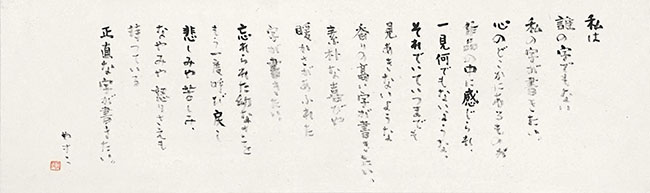 私は
誰の字でもない
私の字が書きたい。
心のどこかに在るものが
作品の中に感じられ、
一見何でもないような、
それでいていつまでも
見あきないような
香りの高い字が書きたい、
素朴な喜びや
暖かさがあふれた
字が書きたい。
忘れられた幼なごころを
もう一度呼び戻し
悲しみや苦しみ、
なやみや怒りさえも
持っている
正直な字が書きたい。